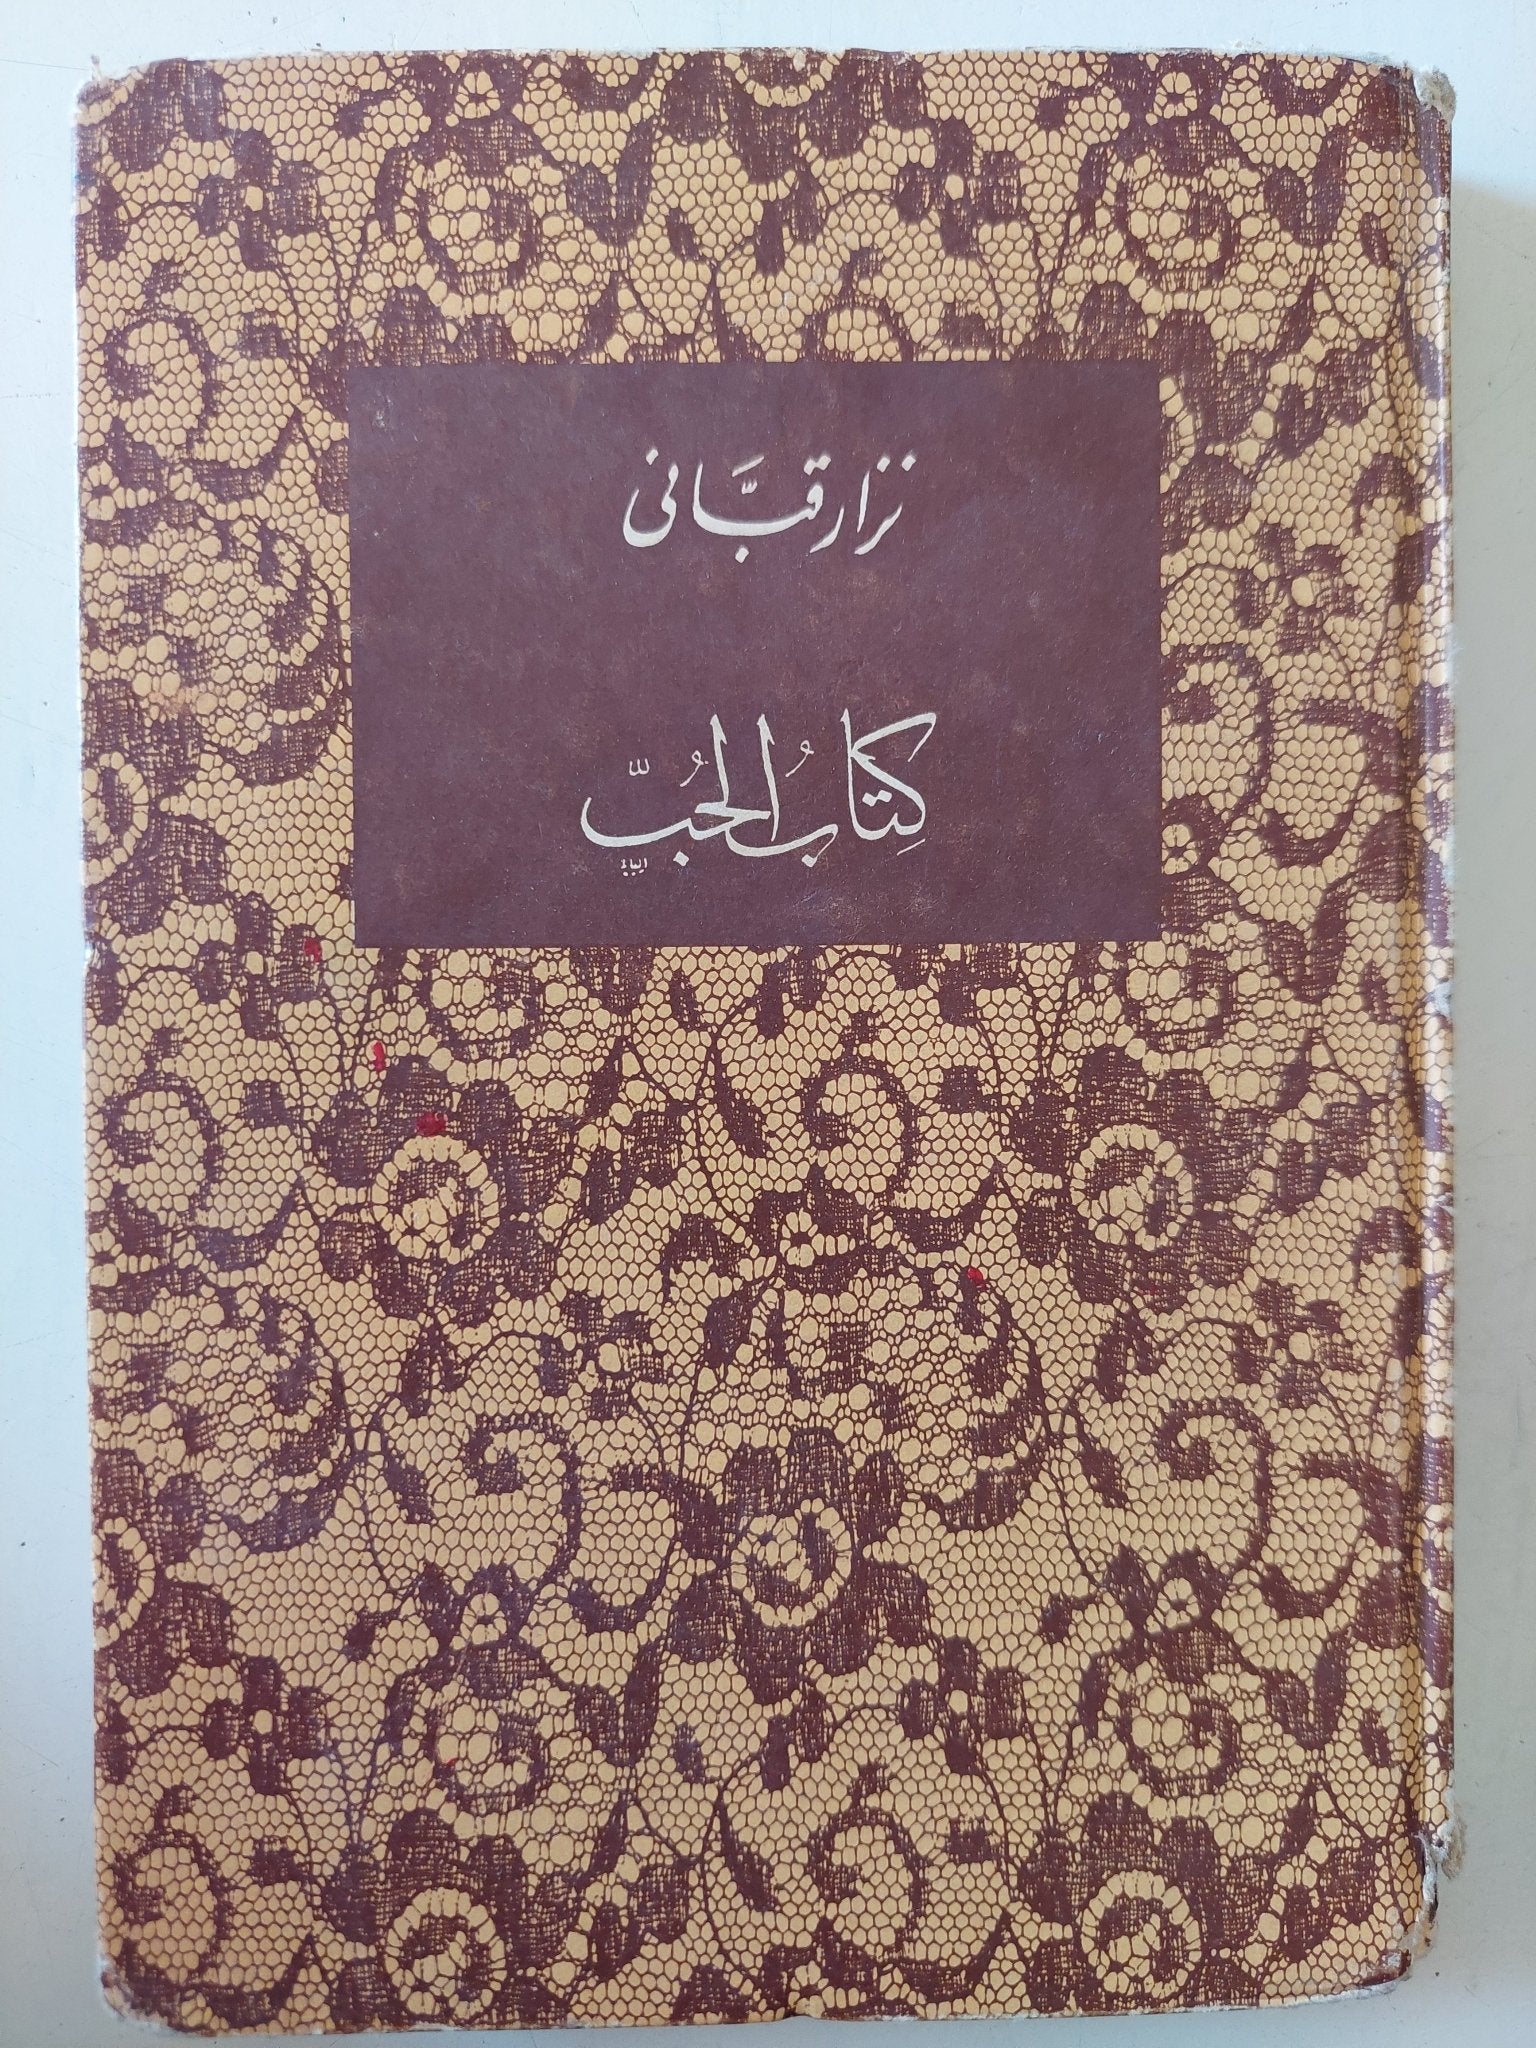 نزار قبَّاني
كِتابُ الحُبّ